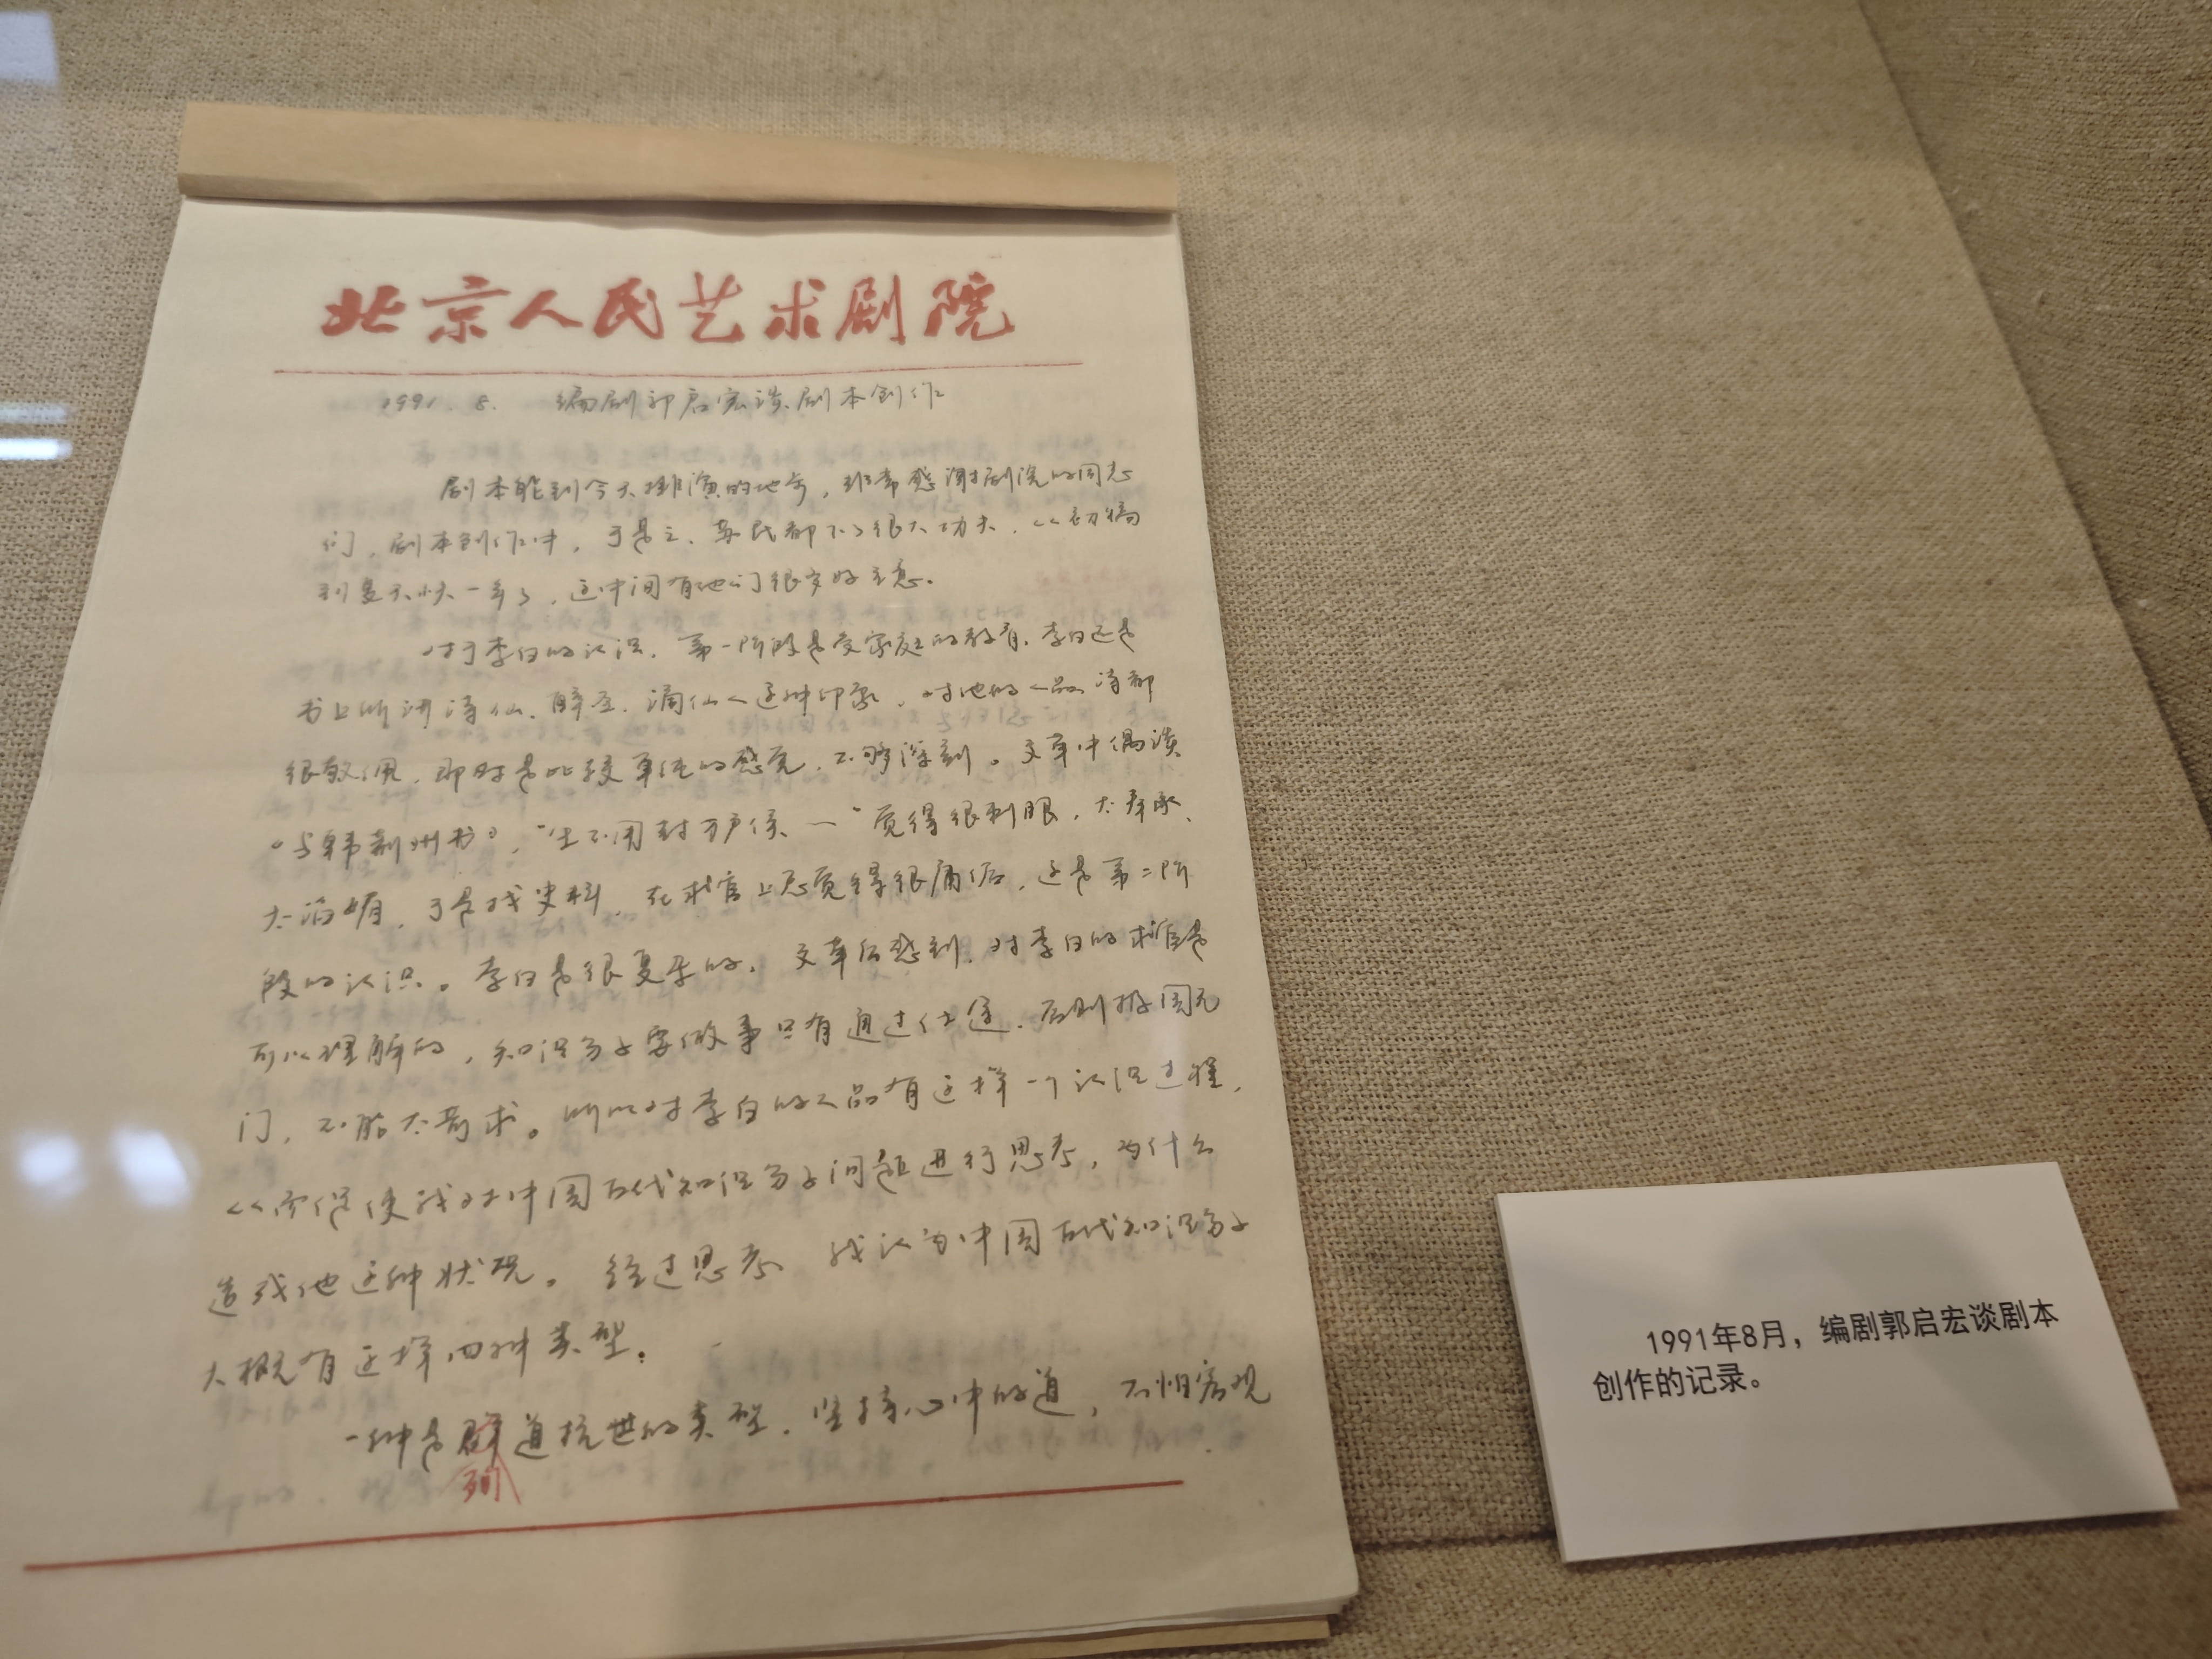 北京人民艺术剧院
1991.8. 编剧郭启宏谈剧本创作
剧本能到今天排演的地步，非常感谢剧院的同志
们，剧本创作中，于是之、苏民都下了很大功夫，从初稿
到复天快一年了，这中间有他们很多好主意。
对于李白的认识，第一阶段是受家庭的教育，李白还是
书上所讲诗仙、醉圣、谪仙人这种印象，对他的人品、诗都
很敬佩，那时是比较单纯的感觉，不够深刻。文革中偶读
《与韩荆州书》，“生不用封万户侯、—”觉得很刺眼，太奉承、
太谄媚，于是找史料，在求官上总觉得很庸俗，这是第二阶
段的认识。李白是很复杂的，文革后感到，对李白的求官是
可以理解的，知识分子要做事只有通过仕途，否则报国无
门，不能太苛求。所以对李白的人品有这样一个认识过程，
从而促使我对中国古代知识分子问题进行思考，为什么
造成他这种状况。经过思考 我认为中国古代知识分子
大概有这样四种类型：
一种是殉道抗世的类型，坚持心中的道，不怕客观
1991年8月，编剧郭启宏谈剧本
创作的记录。